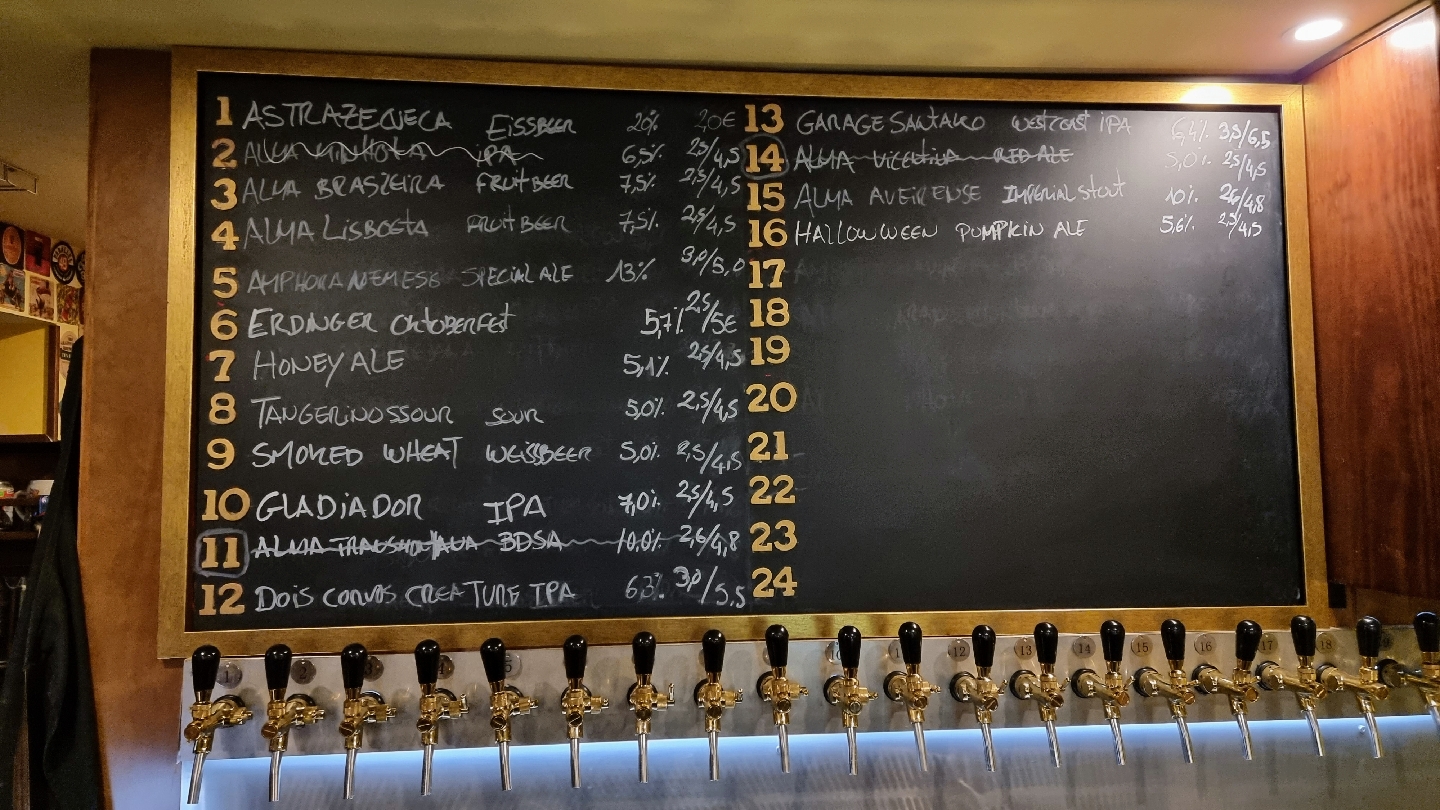 1 ASTRAZENECA EISSBEER 20% 20€
2 ALMA MINHOTA IPA 6,5% 2,5/4,5
3 ALMA BRASZEIRA FRUITBEER 7,5% 2,5/4,5
4 ALMA LISBOETA FRUITBEER 7,5% 2,5/4,5
5 AMPHORA NEMESIS SPECIAL ALE 13% 3,0/5,0
6 ERDINGER OKTOBERFEST 5,7% 2,5/5€
7 HONEY ALE 5,1% 2,5/4,5
8 TANGERINOSSOUR SOUR 5,0% 2,5/4,5
9 SMOKED WHEAT WEISSBEER 5,0% 2,5/4,5
10 GLADIADOR IPA 7,0% 2,5/4,5
11 ALMA BDSA 10,0% 2,6/4,8
12 DOIS CORVOS CREATURE IPA 6,3% 3,0/5,5
13 GARAGE SANTAKO WESTCOAST IPA 6,4% 3,5/6,5
14 ALMA RED ALE 5,0% 2,5/4,5
15 ALMA AVEIRENSE IMPERIAL STOUT 10% 2,6/4,8
16 HALLOWWEEN PUMPKIN ALE 5,6% 2,5/4,5
17
18
19
20
21
22
23
24
1 2 12 13 14 15 16 17 18